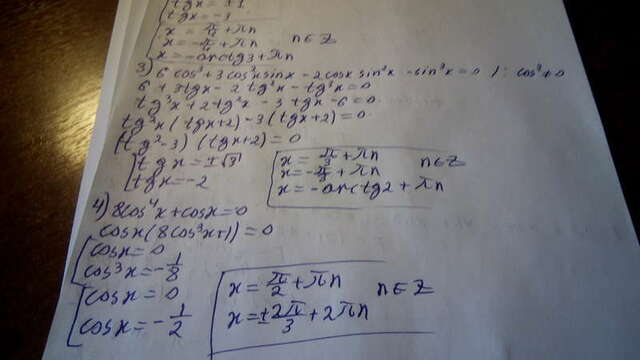 tgx = ±1
tgx = -3
x = π/4 + πn
x = -π/4 + πn n∈Z
x = -arctg3 + πn
3) 6 cos³ + 3cos²x sinx - 2cosx sin²x - sin³x = 0 /: cos³ ≠ 0
6 + 3tgx - 2tg²x - tg³x = 0
tg³x + 2tg²x - 3tgx - 6 = 0
tg²x (tgx+2) - 3(tgx+2) = 0
(tg² - 3) (tgx+2) = 0
tgx = ±√3
tgx = -2
x = π/3 + πn
x = -π/3 + πn n∈Z
x = -arctg2 + πn
4) 8cos⁴x + cosx = 0
cosx(8cos³x+1) = 0
cosx = 0
cos³x = -1/8
cosx = 0
cosx = -1/2
x = π/2 + πn n∈Z
x = ±2π/3 + 2πn